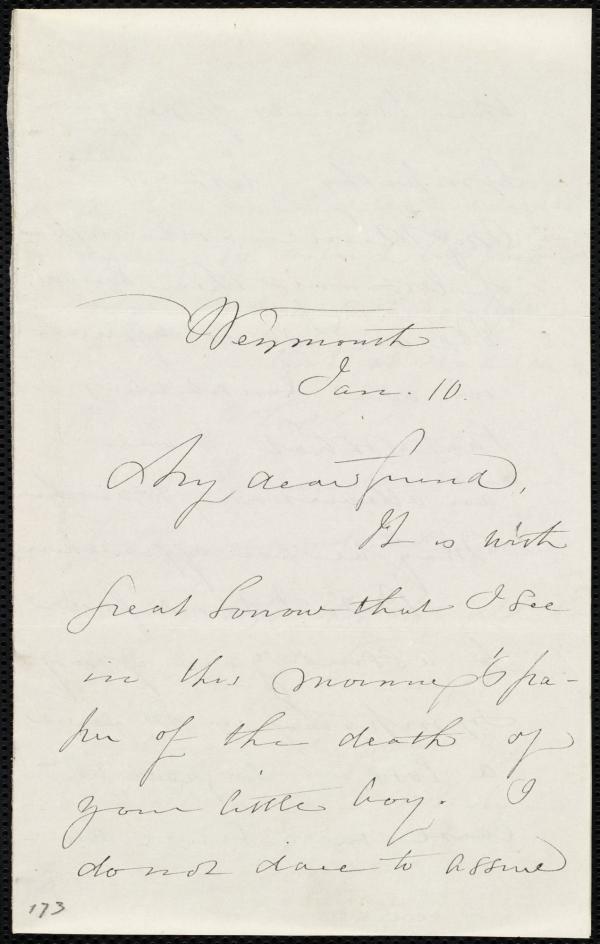 Weymouth
Jan. 10.
My dear friend,
It is with
great sorrow that I see
in this morning's pa-
per of the death of
your little boy. I
do not dare to assure
173